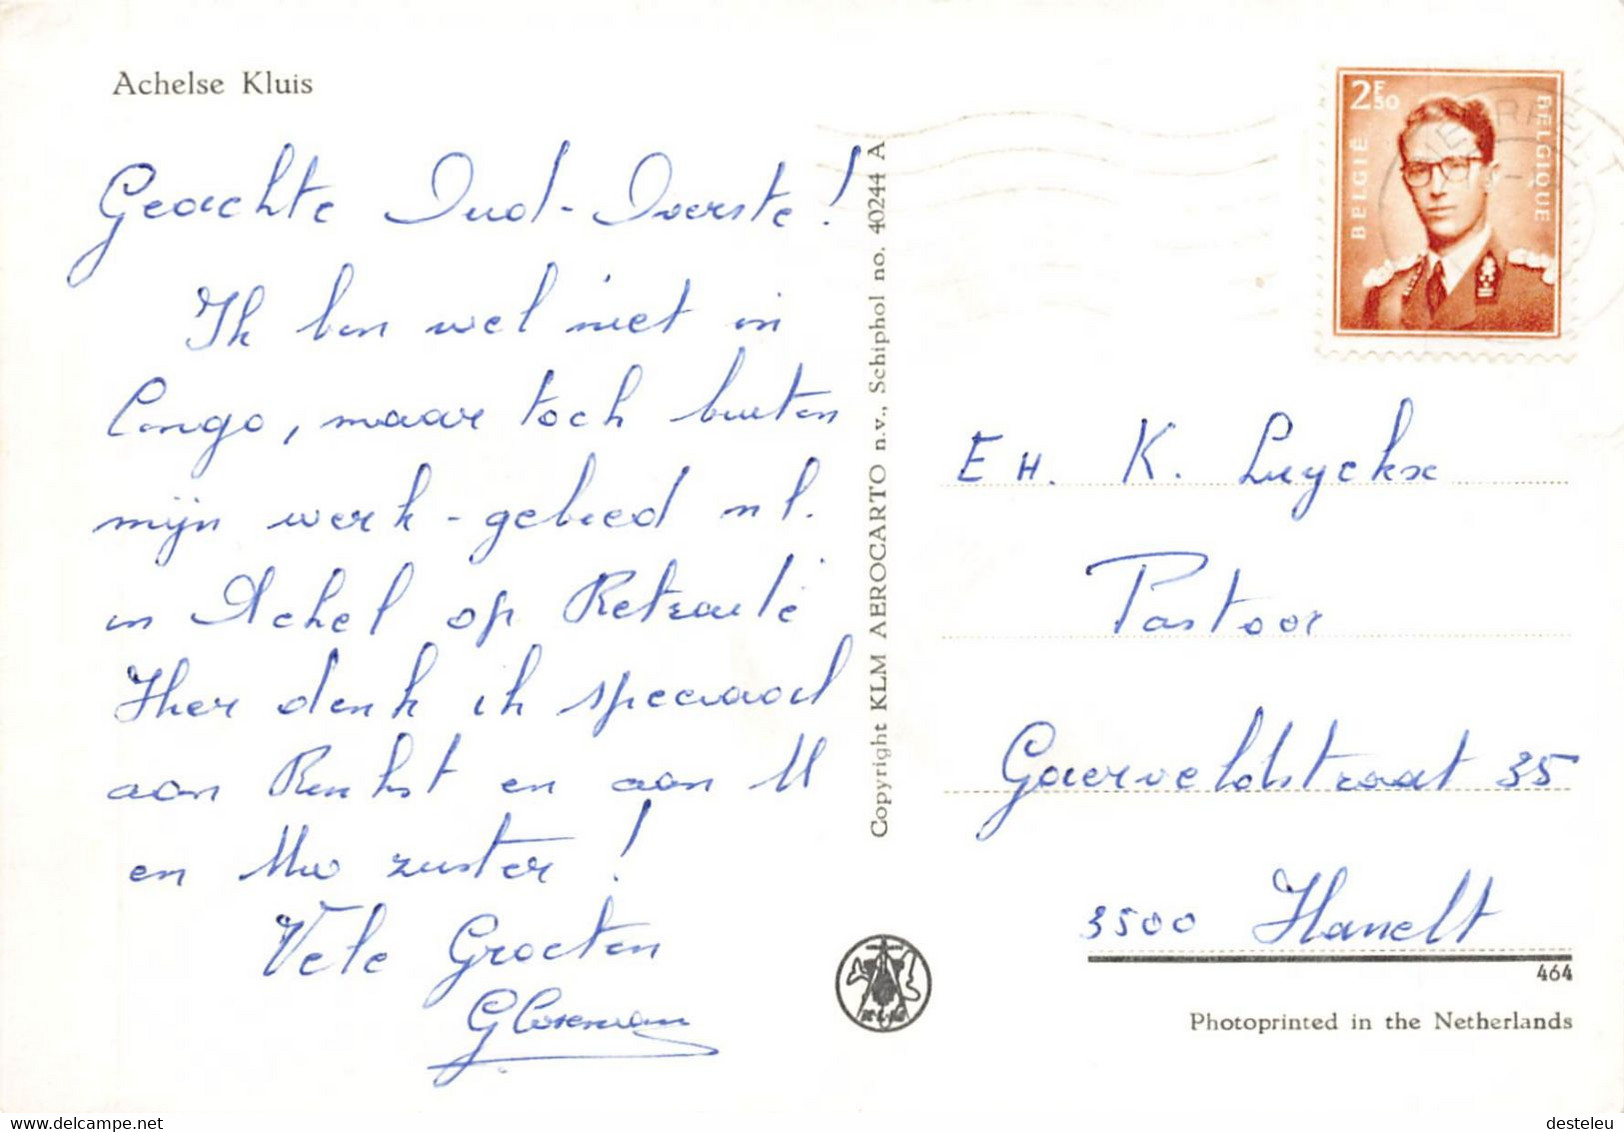 Achelse Kluis
Geachte Oud-Overste!
Ik ben wel niet in
Congo, maar toch buiten
mijn werk-gebied nl.
in Achel op Retraite
Hier denk ik speciaal
aan Runkst en aan U
en Uw zuster!
Vele Groeten
Copyright KLM AEROCARTO n.v., Schiphol no. 40244 A
2F50
BELGIË
BELGIQUE
EH. K. Luyckx
Pastoor
Gaerveldstraat 35
3500 Hasselt
464
Photoprinted in the Netherlands
desteleu